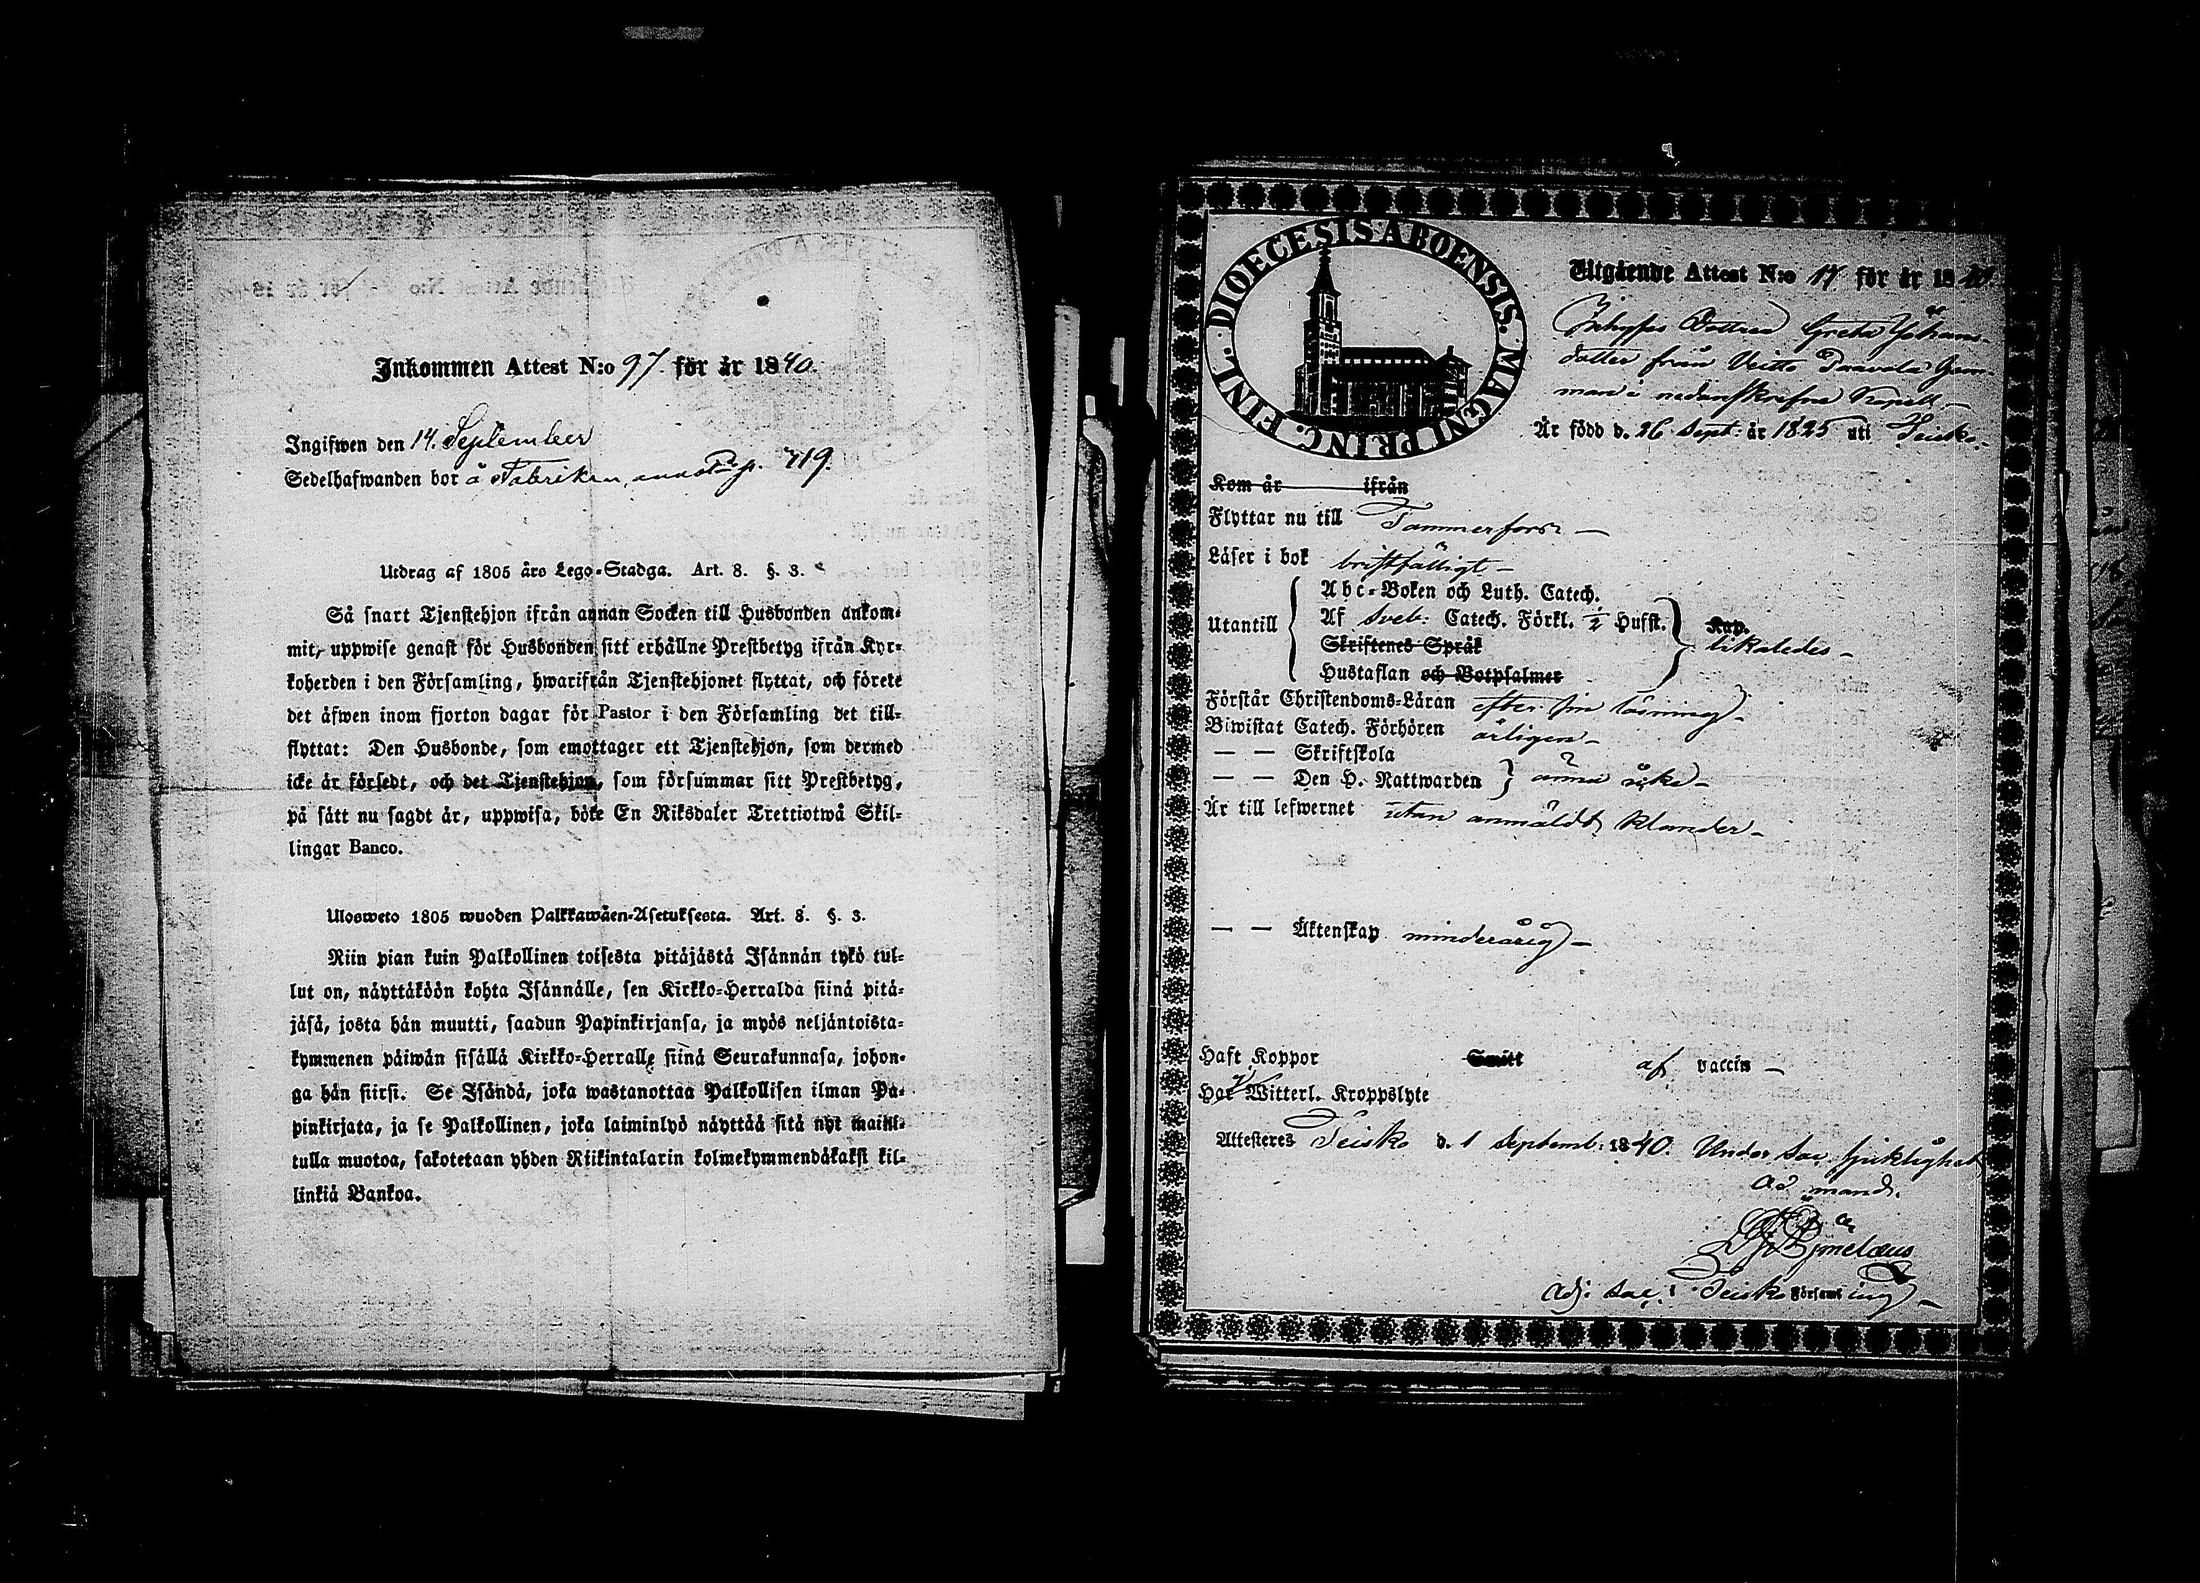 Inkommen Attest N:o 97. för år 1840.
Ingifwen den 14. September
Sedelhafwanden bor å Fabriken, p. 719.
Utdrag af 1805 års Lego-Stadga. Art. 8. §. 3.
Så snart Tjenstehjon ifrån annan Socken till Husbonden ankom-
mit, uppwise genast för Husbonden sitt erhållne Prestbetyg ifrån Kyr-
koherden i den Församling, hwarifrån Tjenstehjonet flyttat, och förete
det äfwen inom fjorton dagar för Pastor i den Församling det till-
flyttat: Den Husbonde, som emottager ett Tjenstehjon, som dermed
icke är försedt, och det Tjenstehjon, som försummar sitt Prestbetyg,
på sätt nu sagdt är, uppwisa, böte En Riksdaler Trettiotwå Skil-
lingar Banco.
Ulosweto 1805 wuoden Palkkawäen-Asetuksesta. Art. 8. §. 3.
Niin pian kuin Palkollinen toisesta pitäjästä Isännän tykö tul-
lut on, näyttäköön kohta Isännälle, sen Kirkko-Herralda siinä pitä-
jäsä, josta hän muutti, saadun Papinkirjansa, ja myös neljäntoista-
kymmenen päiwän sisällä Kirkko-Herralle siinä Seurakunnasa, johon-
ga hän siirsi. Se Isändä, joka wastanottaa Palkollisen ilman Pa-
pinkirjata, ja se Palkollinen, joka laiminlyö näyttää sitä nyt maini-
tulla muotoa, sakotetaan yhden Riikintalarin kolmekymmendäkaksi kil-
linkiä Bankoa.
DIOECESIS ABOENSIS. MAGNI PRINC. FINL.
Utgående Attest N:o 14 för år 1840.
Inhyses Dottren Greta Johans-
dotter från Veitto Paavola Hem-
man i nedanskrefne Kapell.
Är född d. 26 Sept: år 1825 uti Teisko.
Kom år ifrån
Flyttar nu till Tammerfors
Läser i bok bristfälligt
Utantill
Abc-Boken och Luth. Catech.
Af Sveb: Catech. Förkl. 1/2 Husft.
Skriftenes Språk
Hustaflan och Botpsalmer
Kap.
likaledes
Förstår Christendoms-Läran efter sin läsning
Biwistat Catech. Förhören årligen
— — Skriftskola
— — Den H. Nattwarden ännu icke
Är till lefwernet utan anmäldt klander
— — Äktenskap minderårig
Haft Koppor Smitt af vaccin
Har Witterl. Kroppslyte
Attesteres Teisko d. 1 Septemb: 1840. Under Sac. sjuklighet
ad mand.
Adj: Sac: i Teisko Församling